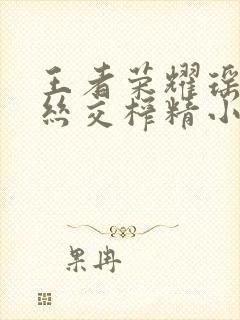 王者荣耀瑶
丝交榨精小
果冉